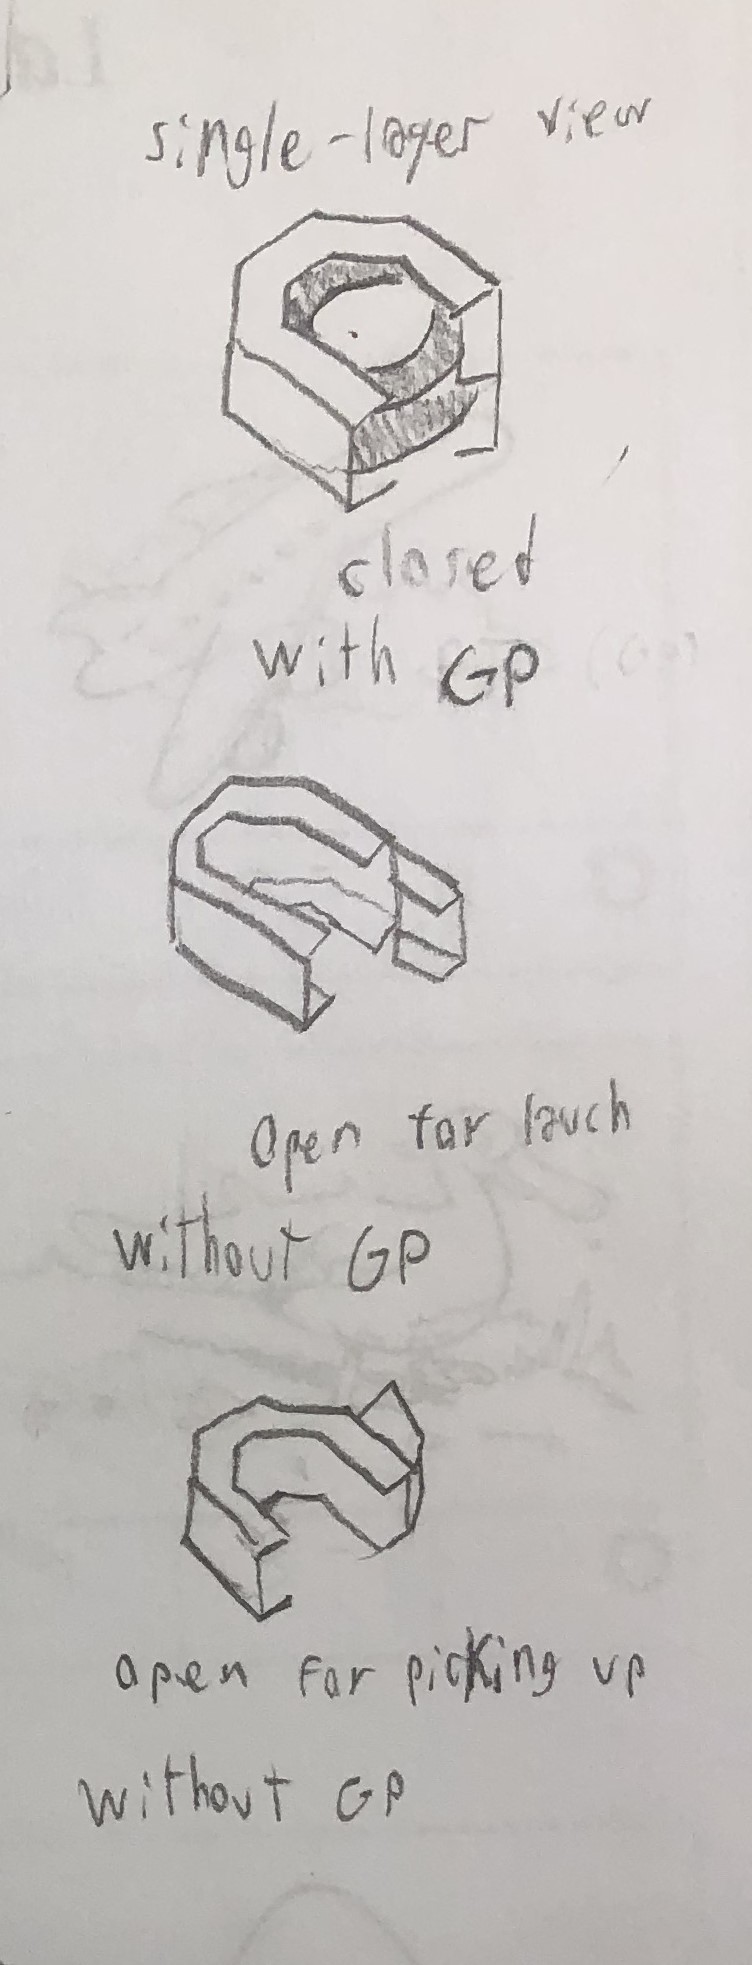 single-layer view
closed
with GP
Open for lauch
without GP
open for picking up
without GP